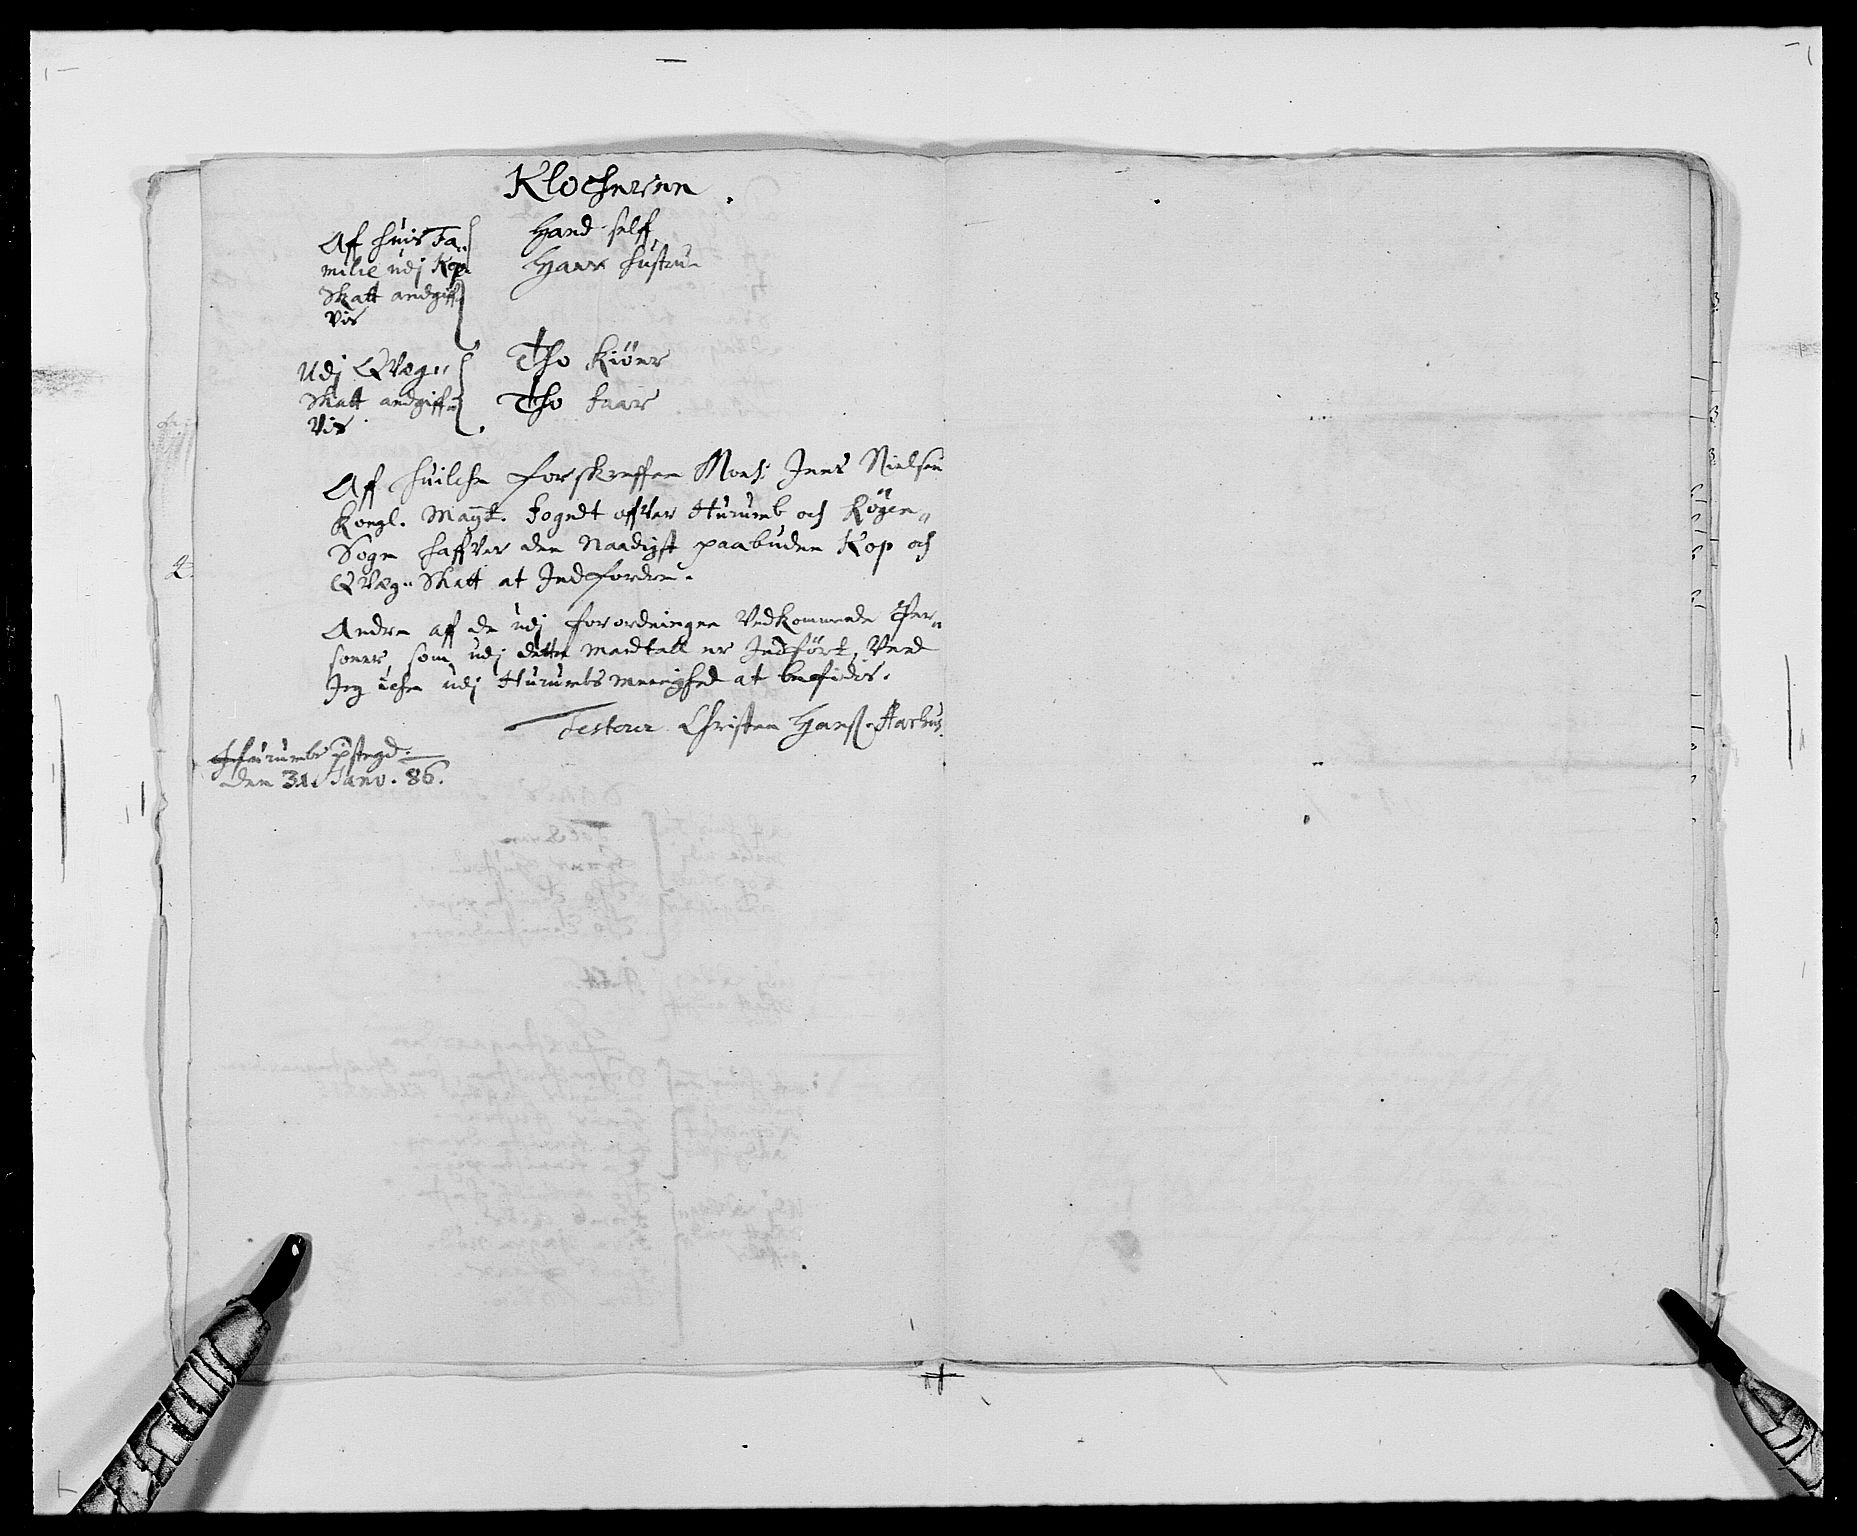 Klocheren
Af huis Fa-
milie udj Kop
Skatt andgiff
vis
Hand self
Hans hustrue
Udj Qvæg-
Skatt andgiff
vis
Tho kiöer
Tho faar
Aff huilche forskreffne Mons: Jens Nielsen
Kongl. Mayt. fogedt offver Hurumb och Röyen
Sogn haffver den Naadigst paabudne Kop och
Qvæg-Skatt at Indfordre.
Andre aff de udj forordningen Vedkommende Per-
soner, som udj dette mandtall er Indfört, Veed
Jeg iche udj Hurumbs menighed at befindis.
Testerer Christen Hanss. Aarhus.
Hurumbs pstegd:
den 31. Janv. 86.
2